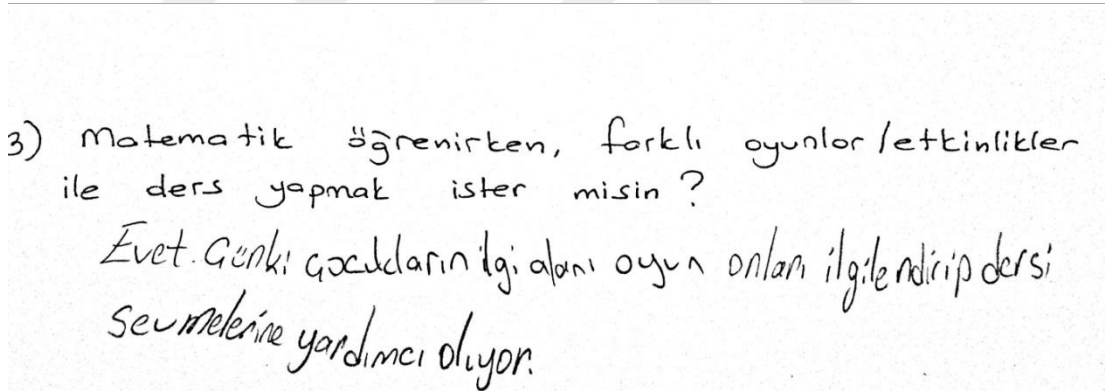 3) Matematik öğrenirken, farklı oyunlar/etkinlikler
ile ders yapmak ister misin?
Evet. Çünki çocukların ilgi alanı oyun onları ilgilendirip dersi
sevmelerine yardımcı oluyor.